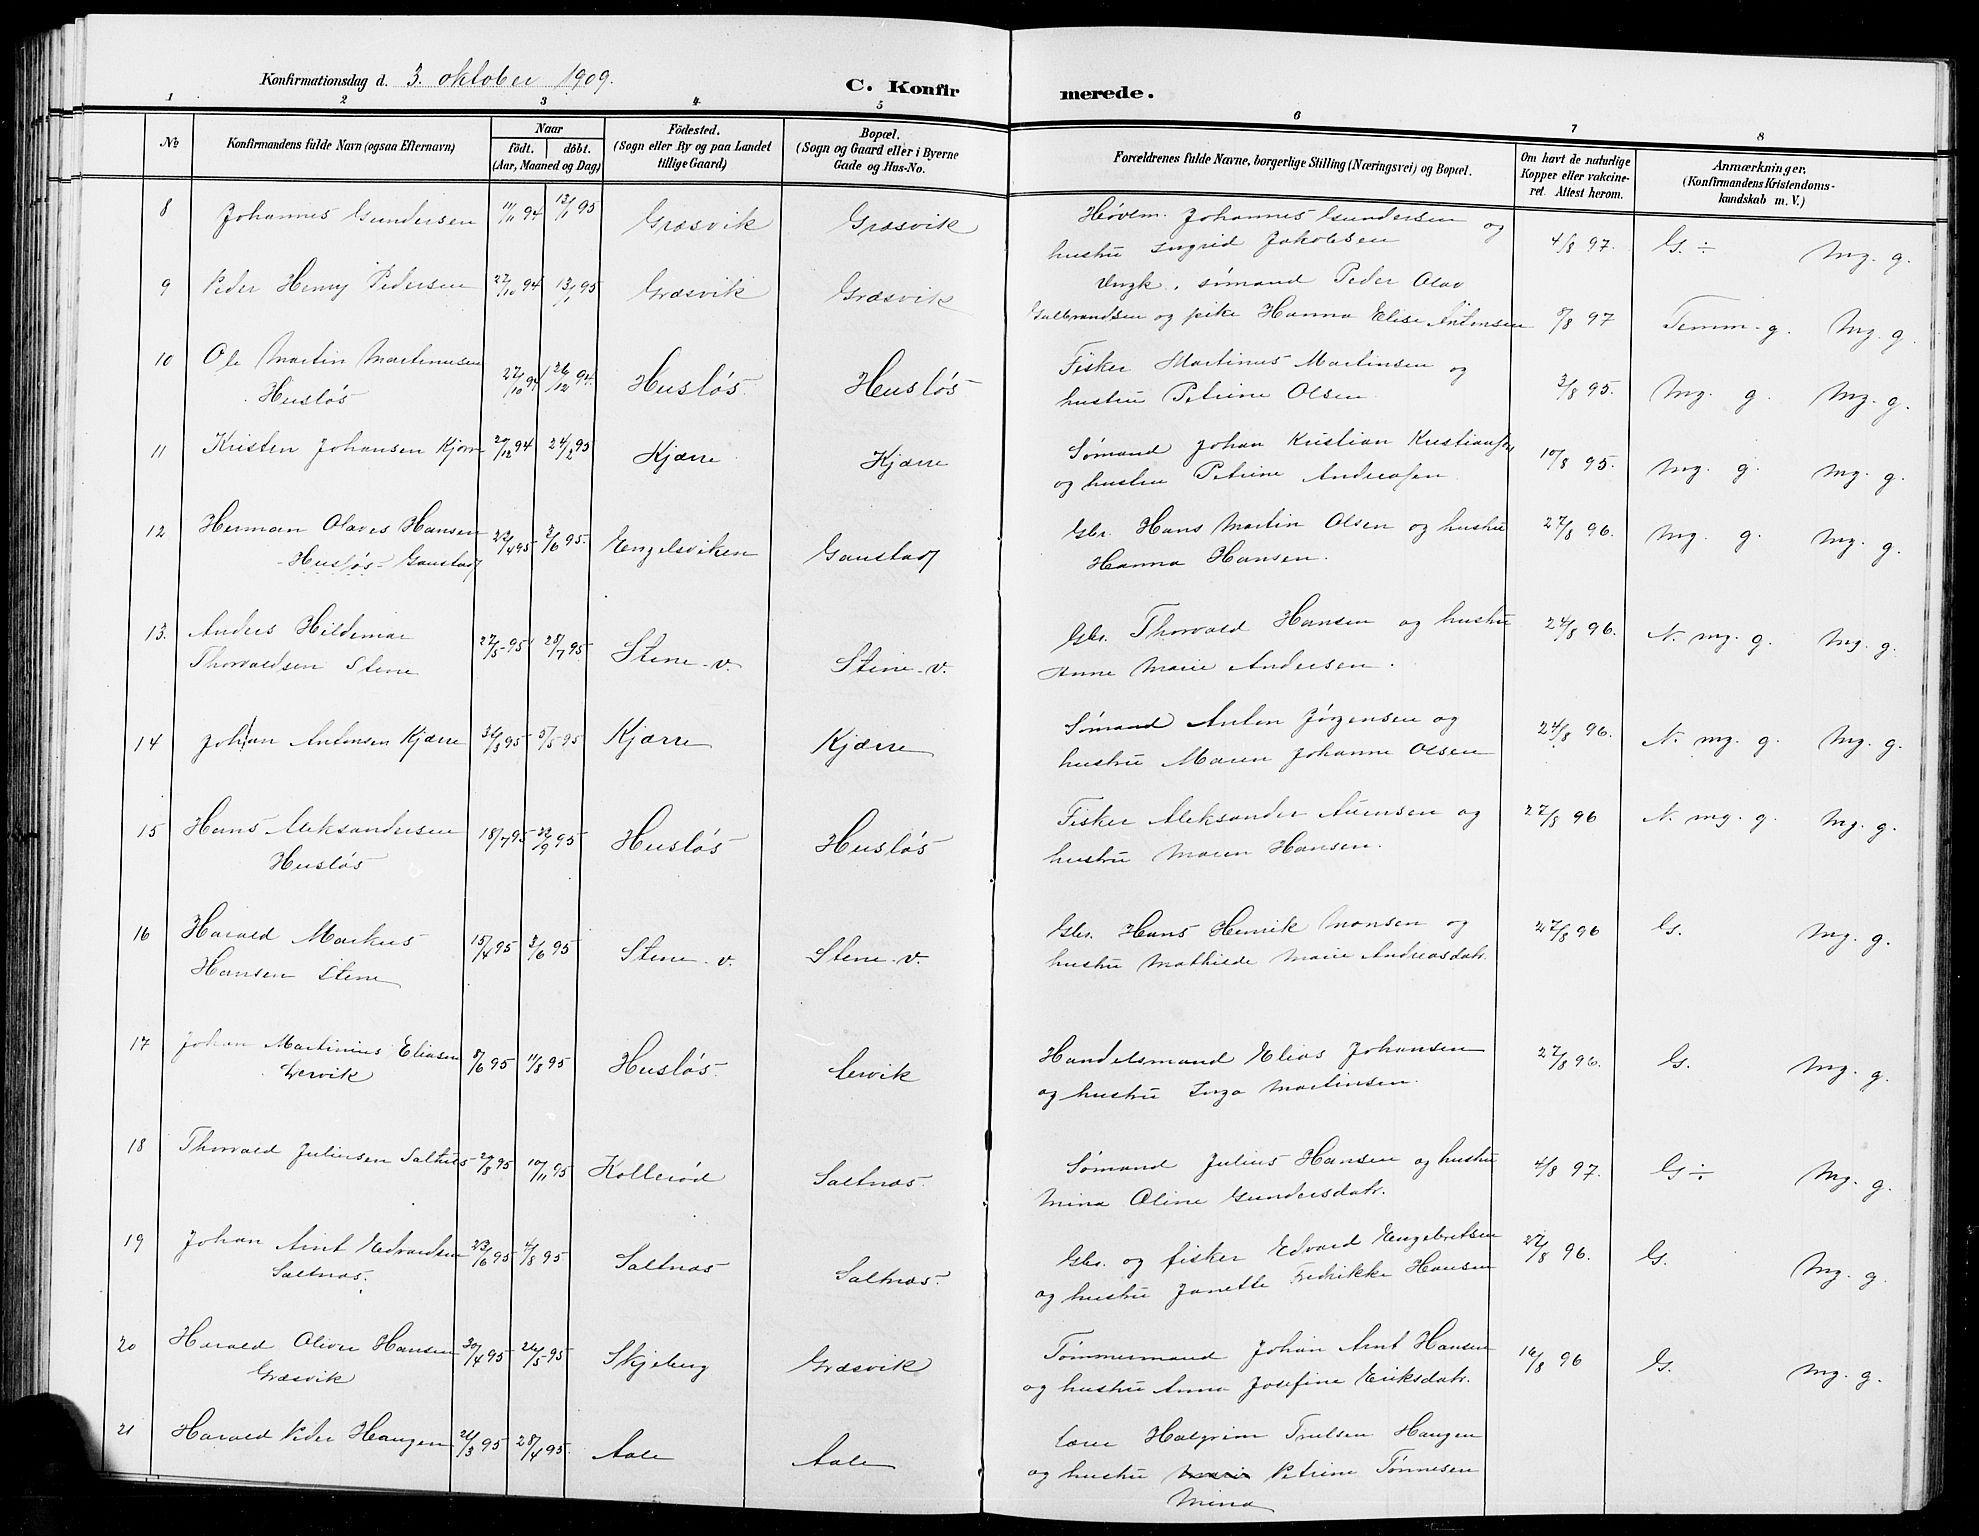 Konfirmationsdag d. 3. oktober 1909.
C. Konfirmerede.
1 2 3 4 5 6 7 8
No
Konfirmandens fulde Navn (ogsaa Efternavn)
Naar
födt. döbt.
(Aar, Maaned og Dag)
Födested.
(Sogn eller By og paa Landet
tillige Gaard)
Bopæl.
(Sogn og Gaard eller i Byerne
Gade og Hus-No.
Forældrenes fulde Navne, borgerlige Stilling (Næringsvei) og Bopæl.
Om havt de naturlige
Kopper eller vakcine-
ret. Attest herom.
Anmærkninger.
(Konfirmandens Kristendoms-
kundskab m. V.)
8 Johannes Gundersen 11/11 94 13/1 95 Græsvik Græsvik Høvlm. Johannes Gundersen og
hustru Ingrid Jakobsen 4/8 97. G ÷ Mg. g.
9 Peder Henry Pedersen 27/10 94 13/1 95 Græsvik Græsvik Ungk. sømand Peder Olav
Gulbrandsen og pike Hanna Elise Antonsen 5/8 97 Temm. g. Mg. g.
10 Ole Martin Martinusen 27/10 94 26/12 94. Husløs Husløs Fisker Martinus Martinsen og
Husløs hustru Petrine Olsen. 3/8 95. Mg. g. Mg. g.
11 Kristen Johansen Kjærre 27/12 94 24/2 95 Kjærre Kjærre Sømand Johan Kristian Kristiansen
og hustru Petrine Andreasen. 10/8 95. Mg. g. Mg. g.
12 Herman Olaves Hansen 22/4 95 2/6 95. Engelsviken Gaustad Gbr. Hans Martin Olsen og hustru
Husløs Gaustad Hanna Hansen. 27/8 96. Mg. g. Mg. g.
13. Anders Hildemar 27/5 95 28/7 95 Stene v. Stene v. Gbr. Thorvald Hansen og hustru
Thorvaldsen Stene Anne Marie Andersen. 24/8 96. N. mg. g. Mg. g.
14 Johan Antonsen Kjærre 95 5/5 95 Kjærre Kjærre Sømand Anton Jørgensen og
hustru Maren Johanne Olsen 24/8 96. N. mg. g. Mg. g.
15 Hans Aleksandersen 18/7 95 22/9 95 Husløs Husløs Fisker Aleksander og
Husløs hustru Maren Hansen. 27/8 96 N. mg. g. Mg. g.
16 Harald Markus 15/4 95 3/6 95 Stene v. Stene v. Gbr. Hans Henrik Monsen og
Hansen Stene hustru Mathilde Marie Andreasdatr. 27/8 96 G. Mg. g.
17 Johan Martinius Eliasen 8/6 95 11/8 95 Husløs. Lervik Handelsmand Elias Johansen
Lervik og hustru Inga Martinsen. 27/8 96. G. Mg. g.
18 Thorvald Juliusen Saltnes 27/8 95 10/11 95 Kollerød Saltnæs. Sømand Julius Hansen og hustru
Mina Oline Gundersdatr. 4/8 97. G ÷ Mg. g.
19 Johan Arnt Edvardsen 23/6 95 4/8 95 Saltnæs Saltnæs. Gbr. og fisker Edvard Engebretsen
Saltnæs. og hustru Janette Fredrikke Hansen 27/8 96. G. Mg. g.
20 Harald Oliver Hansen 30/4 95 26/5 95 Skjeberg Græsvik Tømmermand Johan Arnt Hansen
Græsvik og hustru Anna Josefine Eriksdatr. 16/8 96 G. Mg. g.
21 Harald Peder Haugen 26/3 95 28/4 95. Aale Aale Lærer Halgrim Truelsen Haugen
og hustru Marie Petrine Tønnesen
Mina